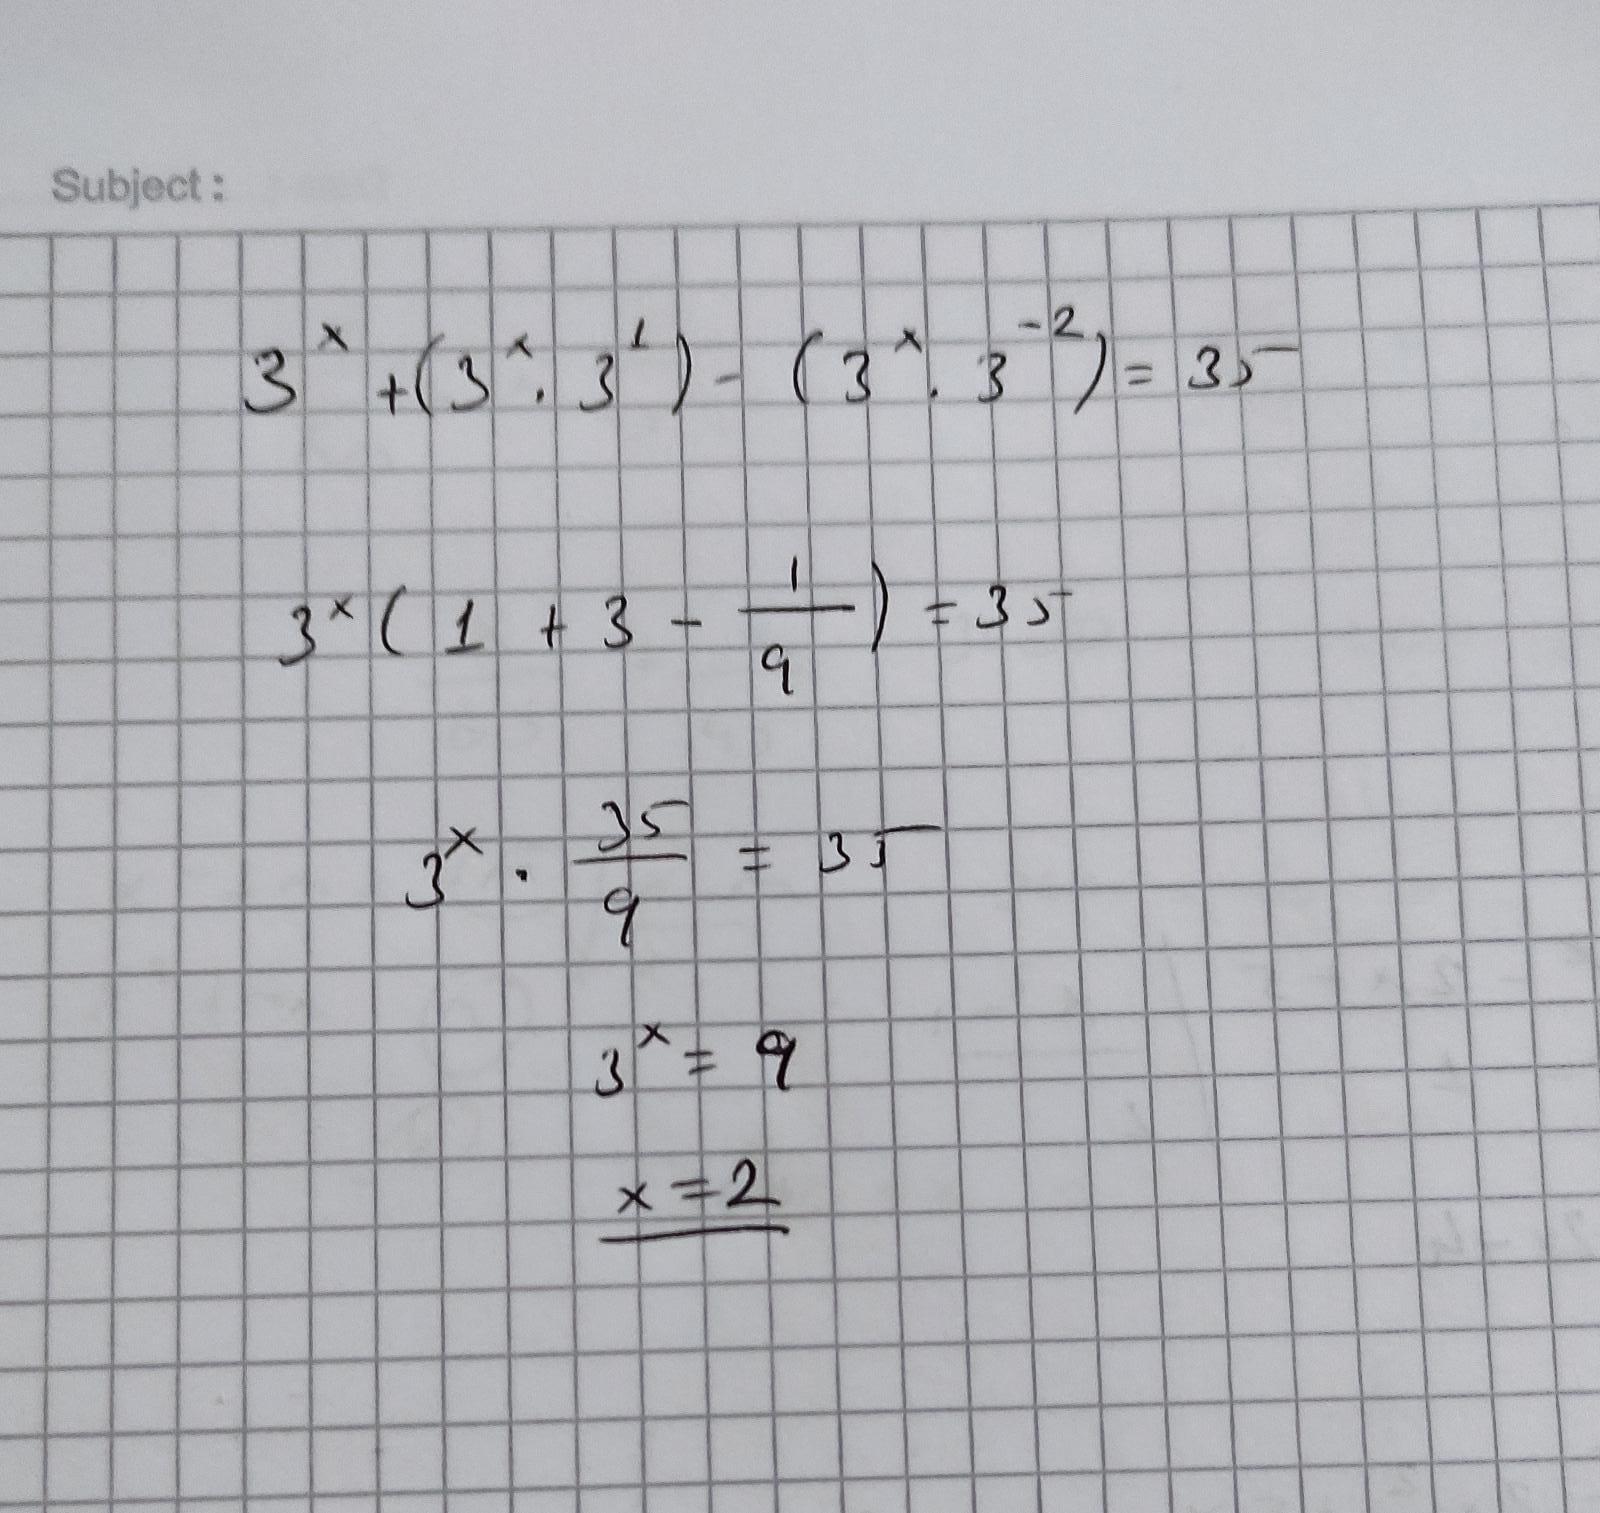 Subject :
3^x + (3^x . 3^1) - (3^x . 3^-2) = 35
3^x ( 1 + 3 - 1/9 ) = 35
3^x . 35/9 = 35
3^x = 9
x = 2